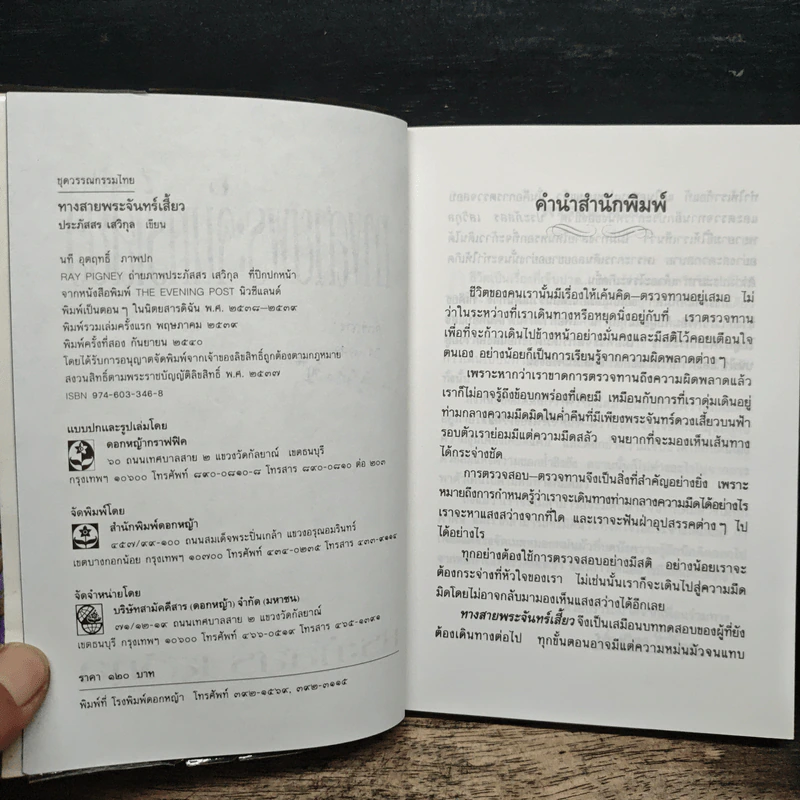 ชุดวรรณกรรมไทย
ทางสายพระจันทร์เสี้ยว
ประภัสสร เสวิกุล เขียน
นที อุตฤทธิ์ ภาพปก
RAY PIGNEY ถ่ายภาพประภัสสร เสวิกุล ที่ปีกปกหน้า
จากหนังสือพิมพ์ THE EVENING POST นิวซีแลนด์
พิมพ์เป็นตอน ๆ ในนิตยสารดิฉัน พ.ศ. ๒๕๓๘–๒๕๓๙
พิมพ์รวมเล่มครั้งแรก พฤษภาคม ๒๕๓๙
พิมพ์ครั้งที่สอง กันยายน ๒๕๔๐
โดยได้รับการอนุญาตจัดพิมพ์จากเจ้าของลิขสิทธิ์ถูกต้องตามกฎหมาย
สงวนสิทธิ์ตามพระราชบัญญัติลิขสิทธิ์ พ.ศ. ๒๕๓๗
ISBN 974-603-346-8
แบบปกและรูปเล่มโดย
ดอกหญ้ากราฟฟิค
๖๐ ถนนเทศบาลสาย ๒ แขวงวัดกัลยาณ์ เขตธนบุรี
กรุงเทพฯ ๑๐๖๐๐ โทรศัพท์ ๘๙๐-๐๘๑๐-๘ โทรสาร ๘๙๐-๐๘๑๐ ต่อ ๒๐๓
จัดพิมพ์โดย
สำนักพิมพ์ดอกหญ้า
๔๕๗/๙๙-๑๐๐ ถนนสมเด็จพระปิ่นเกล้า แขวงอรุณอมรินทร์
เขตบางกอกน้อย กรุงเทพฯ ๑๐๗๐๐ โทรศัพท์ ๔๓๔-๐๒๓๕ โทรสาร ๔๓๓-๙๑๑๔
จัดจำหน่ายโดย
บริษัทสามัคคีสาร (ดอกหญ้า) จำกัด (มหาชน)
๗๑/๑๒-๑๙ ถนนเทศบาลสาย ๒ แขวงวัดกัลยาณ์
เขตธนบุรี กรุงเทพฯ ๑๐๖๐๐ โทรศัพท์ ๔๖๖-๐๕๑๙ โทรสาร ๔๖๕-๑๓๙๑
ราคา ๑๒๐ บาท
พิมพ์ที่ โรงพิมพ์ดอกหญ้า โทรศัพท์ ๓๙๒-๑๕๖๙, ๓๙๒-๓๑๑๕
คำนำสำนักพิมพ์
ชีวิตของคนเรานั้นมีเรื่องให้เค้นคิด–ตรวจทานอยู่เสมอ ไม่
ว่าในระหว่างที่เราเดินทางหรือหยุดนิ่งอยู่กับที่ เราตรวจทาน
เพื่อที่จะก้าวเดินไปข้างหน้าอย่างมั่นคงและมีสติไว้คอยเตือนใจ
ตนเอง อย่างน้อยก็เป็นการเรียนรู้จากความผิดพลาดต่าง ๆ
เพราะหากว่าเราขาดการตรวจทานถึงความผิดพลาดแล้ว
เราก็ไม่อาจรู้ถึงข้อบกพร่องที่เคยมี เหมือนกับการที่เราดุ่มเดินอยู่
ท่ามกลางความมืดมิดในค่ำคืนที่มีเพียงพระจันทร์ดวงเสี้ยวบนฟ้า
รอบตัวเราย่อมมีแต่ความมืดสลัว จนยากที่จะมองเห็นเส้นทาง
ได้กระจ่างชัด
การตรวจสอบ–ตรวจทานจึงเป็นสิ่งที่สำคัญอย่างยิ่ง เพราะ
หมายถึงการกำหนดรู้ว่าเราจะเดินทางท่ามกลางความมืดได้อย่างไร
เราจะหาแสงสว่างจากที่ใด และเราจะฟันฝ่าอุปสรรคต่าง ๆ ไป
ได้อย่างไร
ทุกอย่างต้องใช้การตรวจสอบอย่างมีสติ อย่างน้อยเราจะ
ต้องกระจ่างที่หัวใจของเรา ไม่เช่นนั้นเราก็จะเดินไปสู่ความมืด
มิดโดยไม่อาจกลับมามองเห็นแสงสว่างได้อีกเลย
ทางสายพระจันทร์เสี้ยว จึงเป็นเสมือนบททดสอบของผู้ที่ยัง
ต้องเดินทางต่อไป ทุกขั้นตอนอาจมีแต่ความหม่นมัวจนแทบ